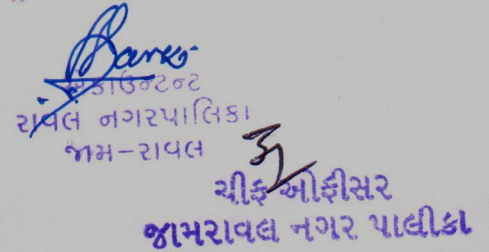 એકાઉન્ટન્ટ
રાવલ નગરપાલિકા
જામ-રાવલ
ચીફ ઓફીસર
જામરાવલ નગર પાલીકા